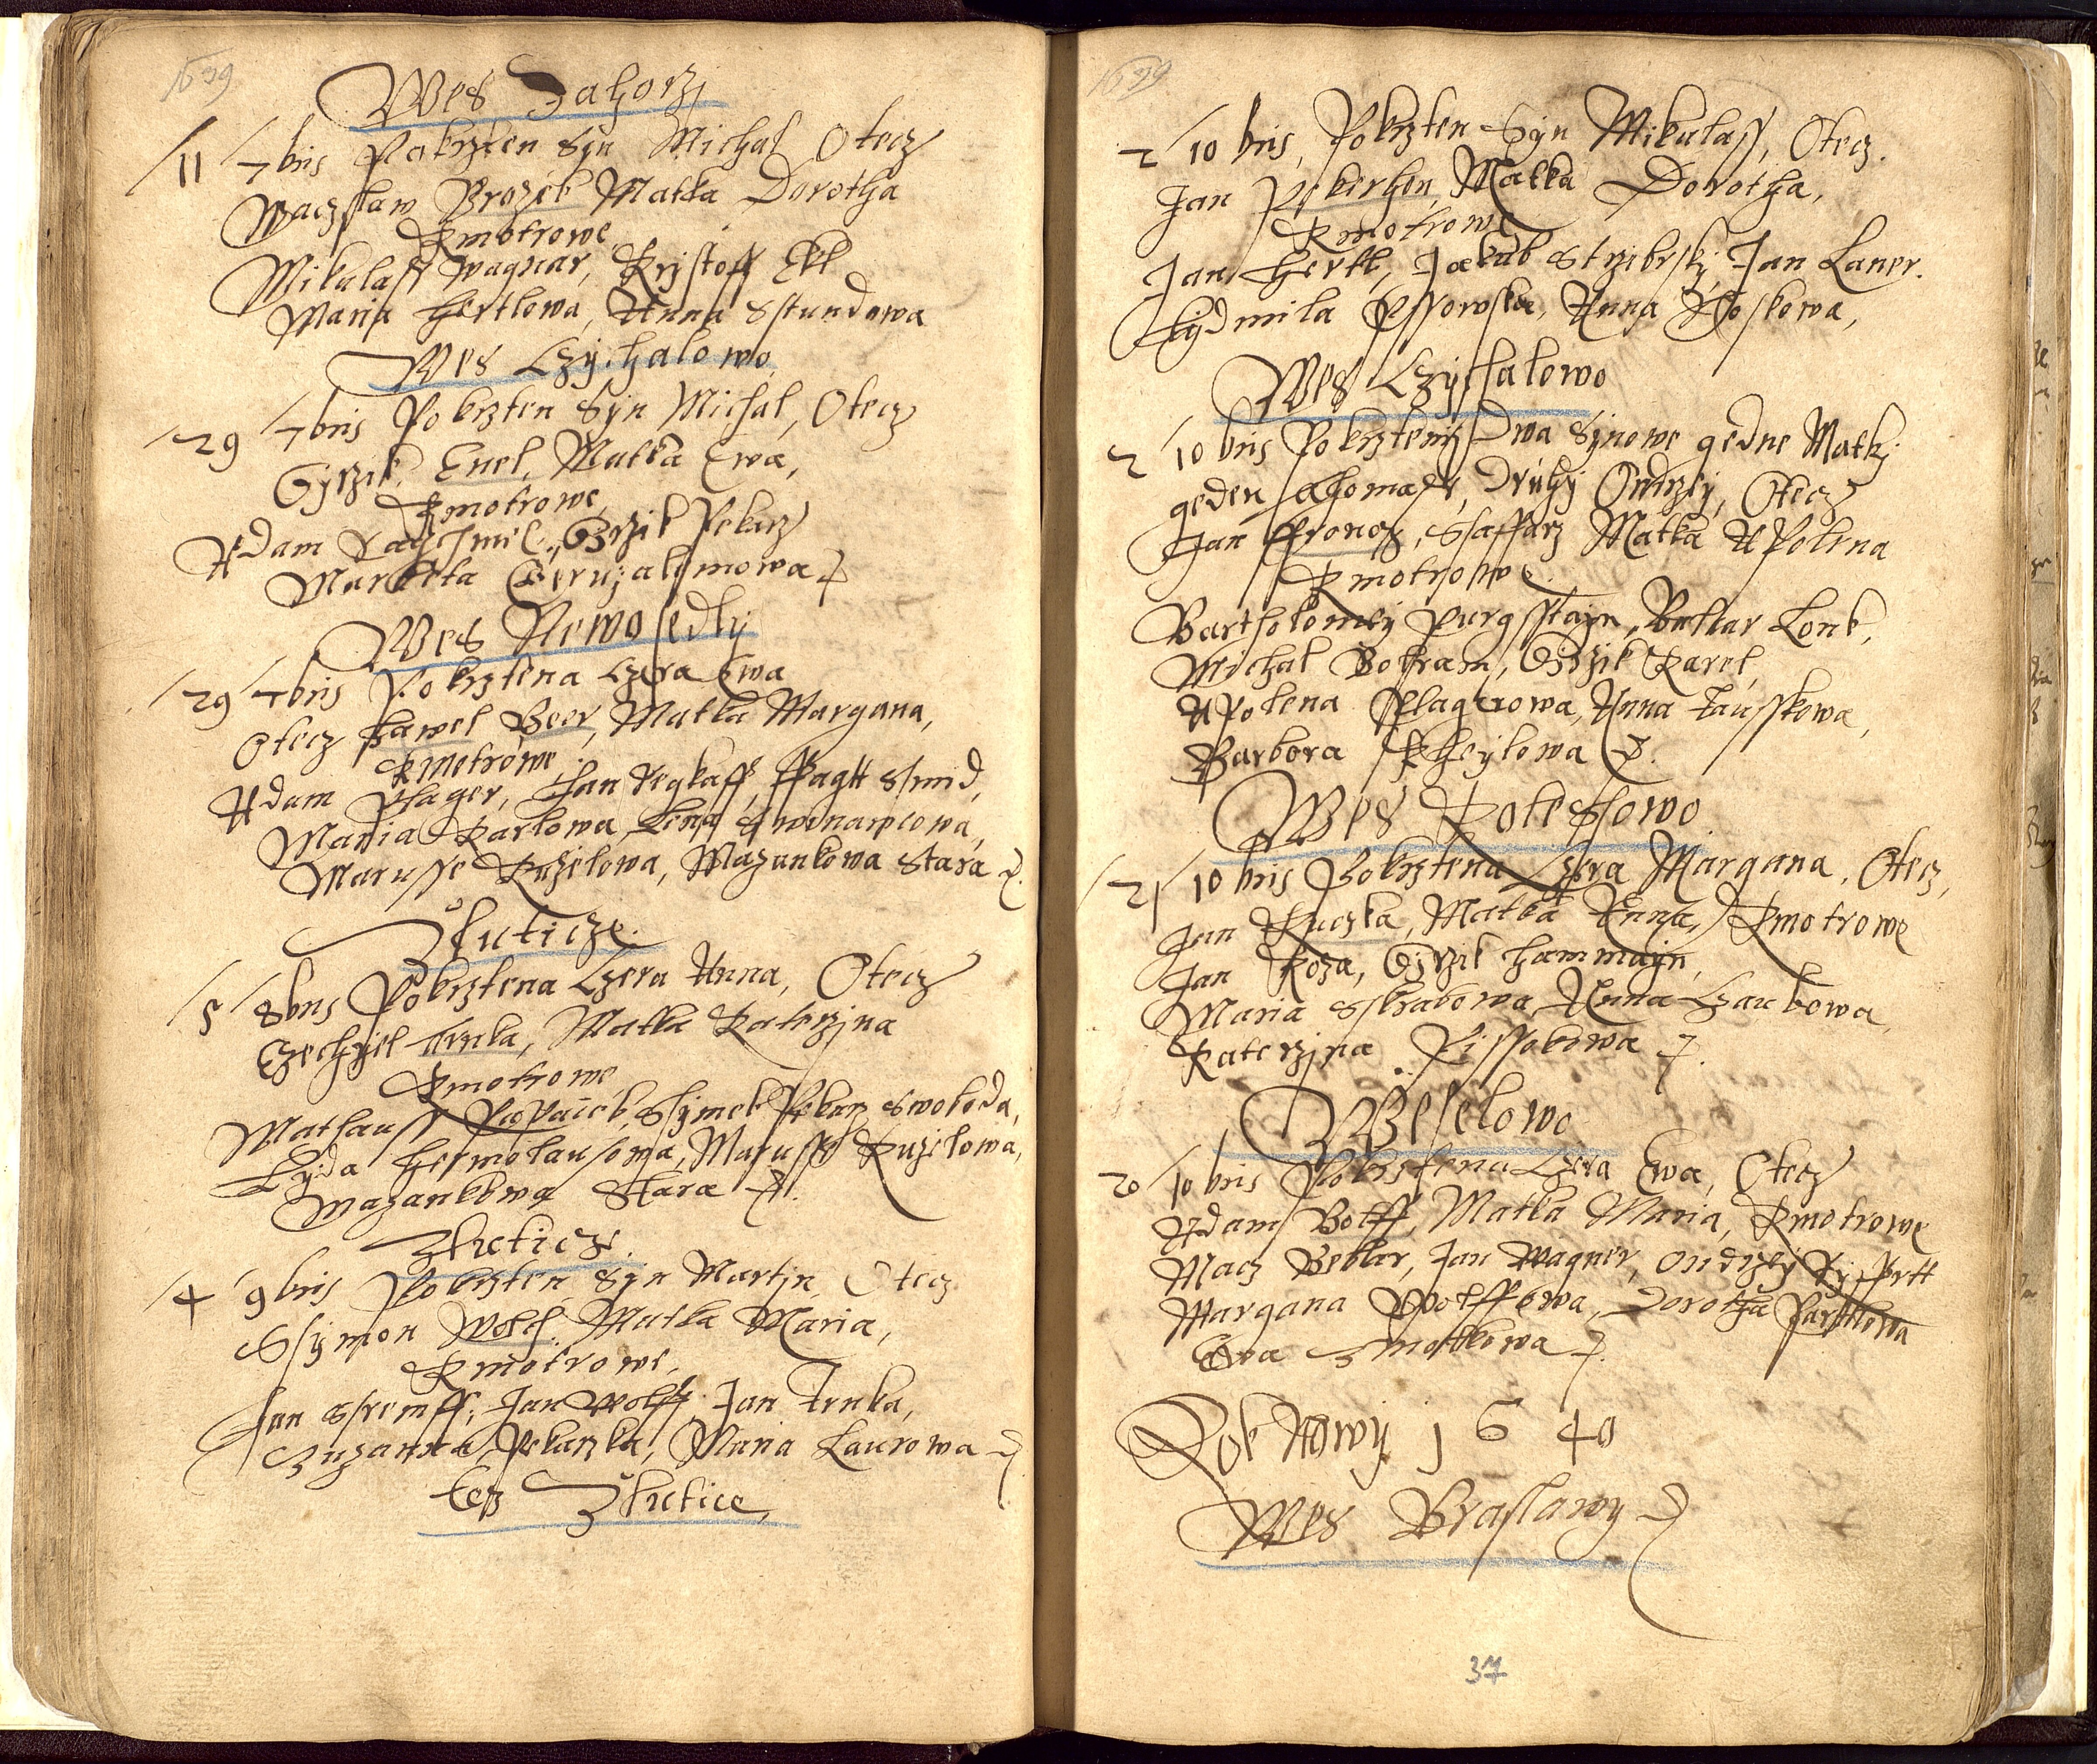 1639
Wes Zahorzj
11 7bris Pokrzten Syn Michal Otecz
Waczslaw Brozek Matka Dorotha
Kmotrowe
Mikulass Wagnar, Krystoff Ekl
Maria Hertlowa, Anna Sstundowa
Wes Czychalowo
29 7bris Pokrzten Syn Michal, Otecz
Gyrzik Enel, Matka Ewa,
Kmotrowe
Adam Girzik Pekarz
Marketa Geruzalemowa
Wes Newosedly
29 7bris Pokrztena Czera Ewa
Otecz Pawel Beer, Matka Margana,
Kmotrowe
Adam Plager, Jan Smid,
Maria Karlowa, Lena
Marusse Kuzelowa, Mazankowa Stara
Zluticze.
5 8bris Pokrztena Czera Anna, Otecz
Ezechyel Trnka, Matka Katerzina
Kmotrowe
Mathauss Papacek, Ssymek Pekarz Swoboda,
Lyda Hermolausowa, Marusse Kuzelowa,
Mazankowa Stara
Zluticze.
4 9bris Pokrzten Syn Martin Otecz
Ssymon Wolf, Matka Maria,
Kmotrowe,
Jan Sstremff, Jan Wolff, Jan Trnka,
Zuzanna Pekarzka, Maria Laurowa
Tez Zlutice,
1639
2 10bris, Pokrzten Syn Mikulass, Otecz.
Jan Matka Dorotha,
Kmotrowe
Jan Hertl, Jakub Strzibrsky, Jan Laner.
Lydmila Pssowska, Anna Koskowa,
Wes Czychalowo
2 10bris Pokrzteniy Dwa Synowe gedne Matky
geden Thomass, Druhy Ondrzey, Otecz
Jan Fronek, Ssaffarz Matka Apolena
Kmotrowe
Bartholomey Purgsstayn, Baltzar Lonk,
Michal Bolfram, Girzik Karel,
Apolena Plagerowa, Anna Tausskowa,
Barbora
Wes Kolessowo
21 10bris Pokrztena Czera Margana, Otecz,
Jan Kuczka, Matka Anna, Kmotrowe
Jan Koza, Gyrzik Hammayn,
Maria Sskrabowa, Anna Czaukowa,
Katerzina Pissekowa
W Weselowo
20 10bris Pokrztena Czera Ewa, Otecz
Adam Bolff, Matka Maria, Kmotrowe
Macz Bekler, Jan Wagner, Ondrzey
Margana Wolffowa, Dorotha
Ewa Zmolkowa
Rok Nowy 1640
Wes Braslawy
37